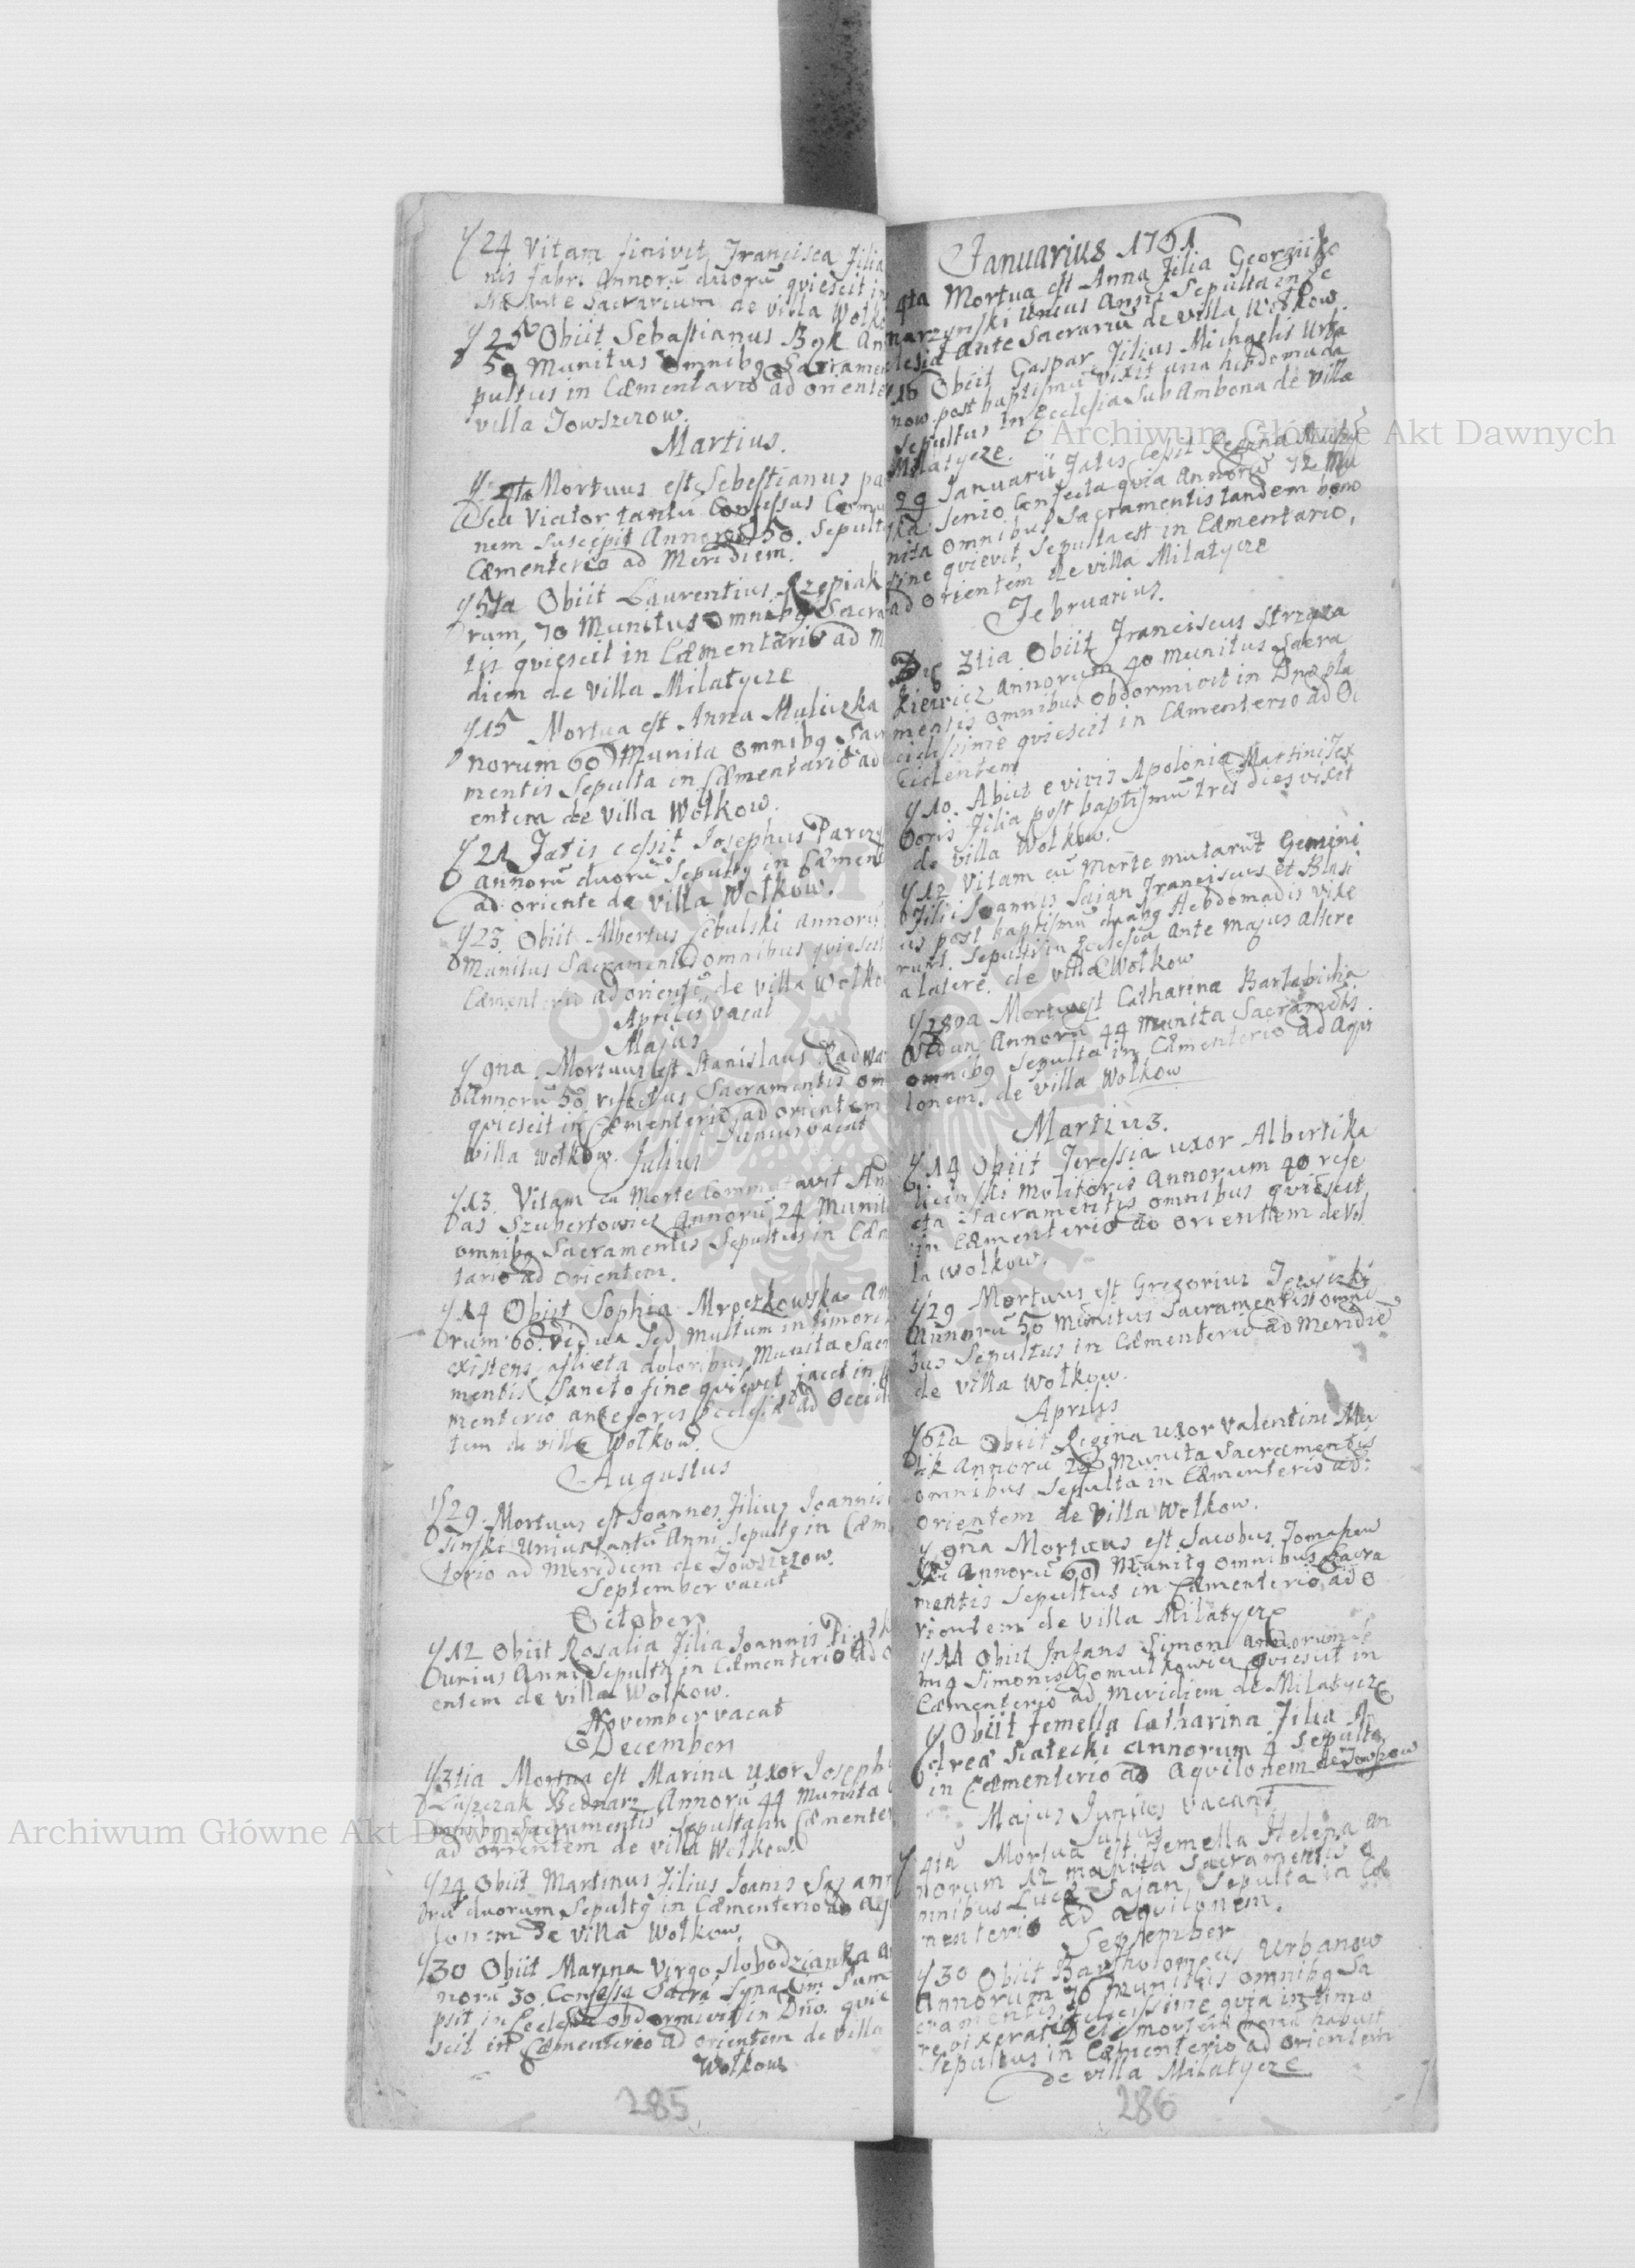 24 Vitam finivit Francisca Filia
nis fabr. Annorū duorū quiescit in
Ante Sacrarium de villa Wołko
25 Obiit Sebastianus Bąk An
50 Munitus omnibq Sacramen
pultus in Cæmentario ad oriente
villa Towszczow.
Martius.
4ta Mortuus est Sebestianus pa
seu Viator tantū Confessus Comu
nem suscepit Annorū 50. Sepult
Cæmenterio ad Meridiem.
5ta Obiit Laurentius Rzepiak
rum, 70 Munitus omnibq Sacra
tis quiescit in Cæmentario ad M
diem de villa Milatycze
15 Mortua est Anna Muliczka
norum 60 Munita omnibq Sacr
mentis Sepulta in Cæmentario ad
entem de villa Wołkow.
21 Fatis cessit Josephus Parcz
annorū duorū Sepultq in Cæmen
ad oriente de villa Wołkow.
23 Obiit Albertus Cebulski annorū
Munitus Sacramentis omnibus quiescit
Cæmenterio ad orientē de villa Wołko
Aprilis vacat
Majus
9na Mortuus est Stanislaus Radwa
Annorū 50 refectus Sacramentis om
quiescit in Cæmenterio ad orientem
villa Wołkow. Junius vacat
Julius
13. Vitam cū Morte Commutavit An
as Szubertowicz Annorū 24 Munit
omnibq Sacramentis Sepultus in Cæm
tario ad Orientem.
14 Obiit Sophia Mroczkowska An
orum 60. vidua Sed Multum in timore
existens aflicta doloribus Munita Sacr
mentis Sancto fine quievit jacet in
menterio ante fores Ecclesiæ ad Occid
tem de villa Wołkow.
Augustus
29. Mortuus est Joannes Filius Joannis
Unius tantū Anni Sepultq in Cæm
terio ad Meridiem de Towszczow.
September vacat
October
12 Obiit Rosalia Filia Joannis
unius Anni Sepulta in Cæmenterio ad o
entem de villa Wołkow.
November vacat
December
3tia Mortua est Marina Uxor Joseph
Łuszczak Bednarz Annorū 44 Munita
omnibq Sacramentis Sepulta in Cæmente
ad orientem de villa Wołkow.
24 Obiit Martinus Filius Joanis Sas ann
orū duorum Sepultq in Cæmenterio ad Aqui
lonem de villa Wołkow.
30 Obiit Marina Virgo Słobodzianka an
norū 30. Confessa Sacrā Synaxim Sum
psit in Ecclesia obdormivit in Dño. quie
scit in Cæmenterio ad orientem de villa
Wołkow
285
Januarius 1761
4ta Mortua est Anna Filia Georgii Ko
narzynski Unius Anni Sepulta in Ec
clesia Ante Sacrariū de villa Wołkow.
15 Obiit Gaspar Filius Michaelis Urba
now post baptismū vixit una hebdomada
Sepultus in Ecclesia Sub Ambona de villa
Milatycze.
29 Januarii Fatis Cessit Regina
ka Senio Confecta quia Annorū 72 Mu
nita omnibus Sacramentis tandem bono
fine quievit, Sepulta est in Cæmentario,
ad Orientem de villa Milatycze
Februarius.
Die 3tia Obiit Franciscus Strzała
kiewicz Annorum 40 Munitus Sacra
mentis omnibus obdormivit in Dño pla
cidissime quiescit in Cæmenterio ad Oc
cidentem
10. Abiit e vivis Apolonia Martini Tex
toris Filia post baptismū tres dies vixit
de villa Wołkow.
12 Vitam cū Morte mutarūt Gemini
Filii Joannis Sajan Franciscus et Blasi
us post baptismū duabq Hebdomadis vixe
runt. Sepulti in Ecclesia Ante Majus Altare
a latere. de villa Wołkow
28va Mortua est Catharina Bartabicha
Annorū 44 Munita Sacramētis
omnibq Sepulta in Cæmenterio ad Aqui
lonem. de villa Wołkow
Martius.
14 Obiit Teressia uxor Alberti Ka
Molitoris Annorum 40 refe
cta Sacramentis omnibus quiescit
in Cæmenterio ad orientem de Vil
la Wołkow.
29 Mortuus est Gregorius
Annorū 50 Munitus Sacramentis omni
bus Sepultus in Cæmenterio ad Meridiē
de villa Wołkow.
Aprilis
6ta Obiit Regina uxor Valentini Mu
lik Annorū 24 Munita Sacramentis
omnibus Sepulta in Cæmenterio ad
orientem de Villa Wołkow.
9na Mortuus est Jacobus Tomaszew
ski Annorū 60 Munitq Omnibus Sacra
mentis Sepultus in Cæmenterio ad o
rientem de villa Milatycze
11 Obiit Infans Simon annorum
Simonis Gomułkowicz quiescit in
Cæmenterio ad Meridiem de Milatycze
Obiit femella Catharina Filia An
dreæ Siatecki annorum 4 Sepulta
in Cæmenterio ad Aquilonem de Towszow
Majus Junius vacant
Julius
4ta Mortua est Femella Helena an
norum 12 munita Sacramentis o
mnibus Lucæ Sajan, Sepulta in Cæ
menterio ad aquilonem.
September
30 Obiit Bartholomeus Urbanow
Annorum 76 Munitus omnibq Sa
cramentis felicissime quia in timo
re vixerat Dei mortem bonā habuit
Sepultus in Cæmenterio ad orientem
de villa Milatycze
286
Archiwum Główne Akt Dawnych
Archiwum Główne Akt Dawnych